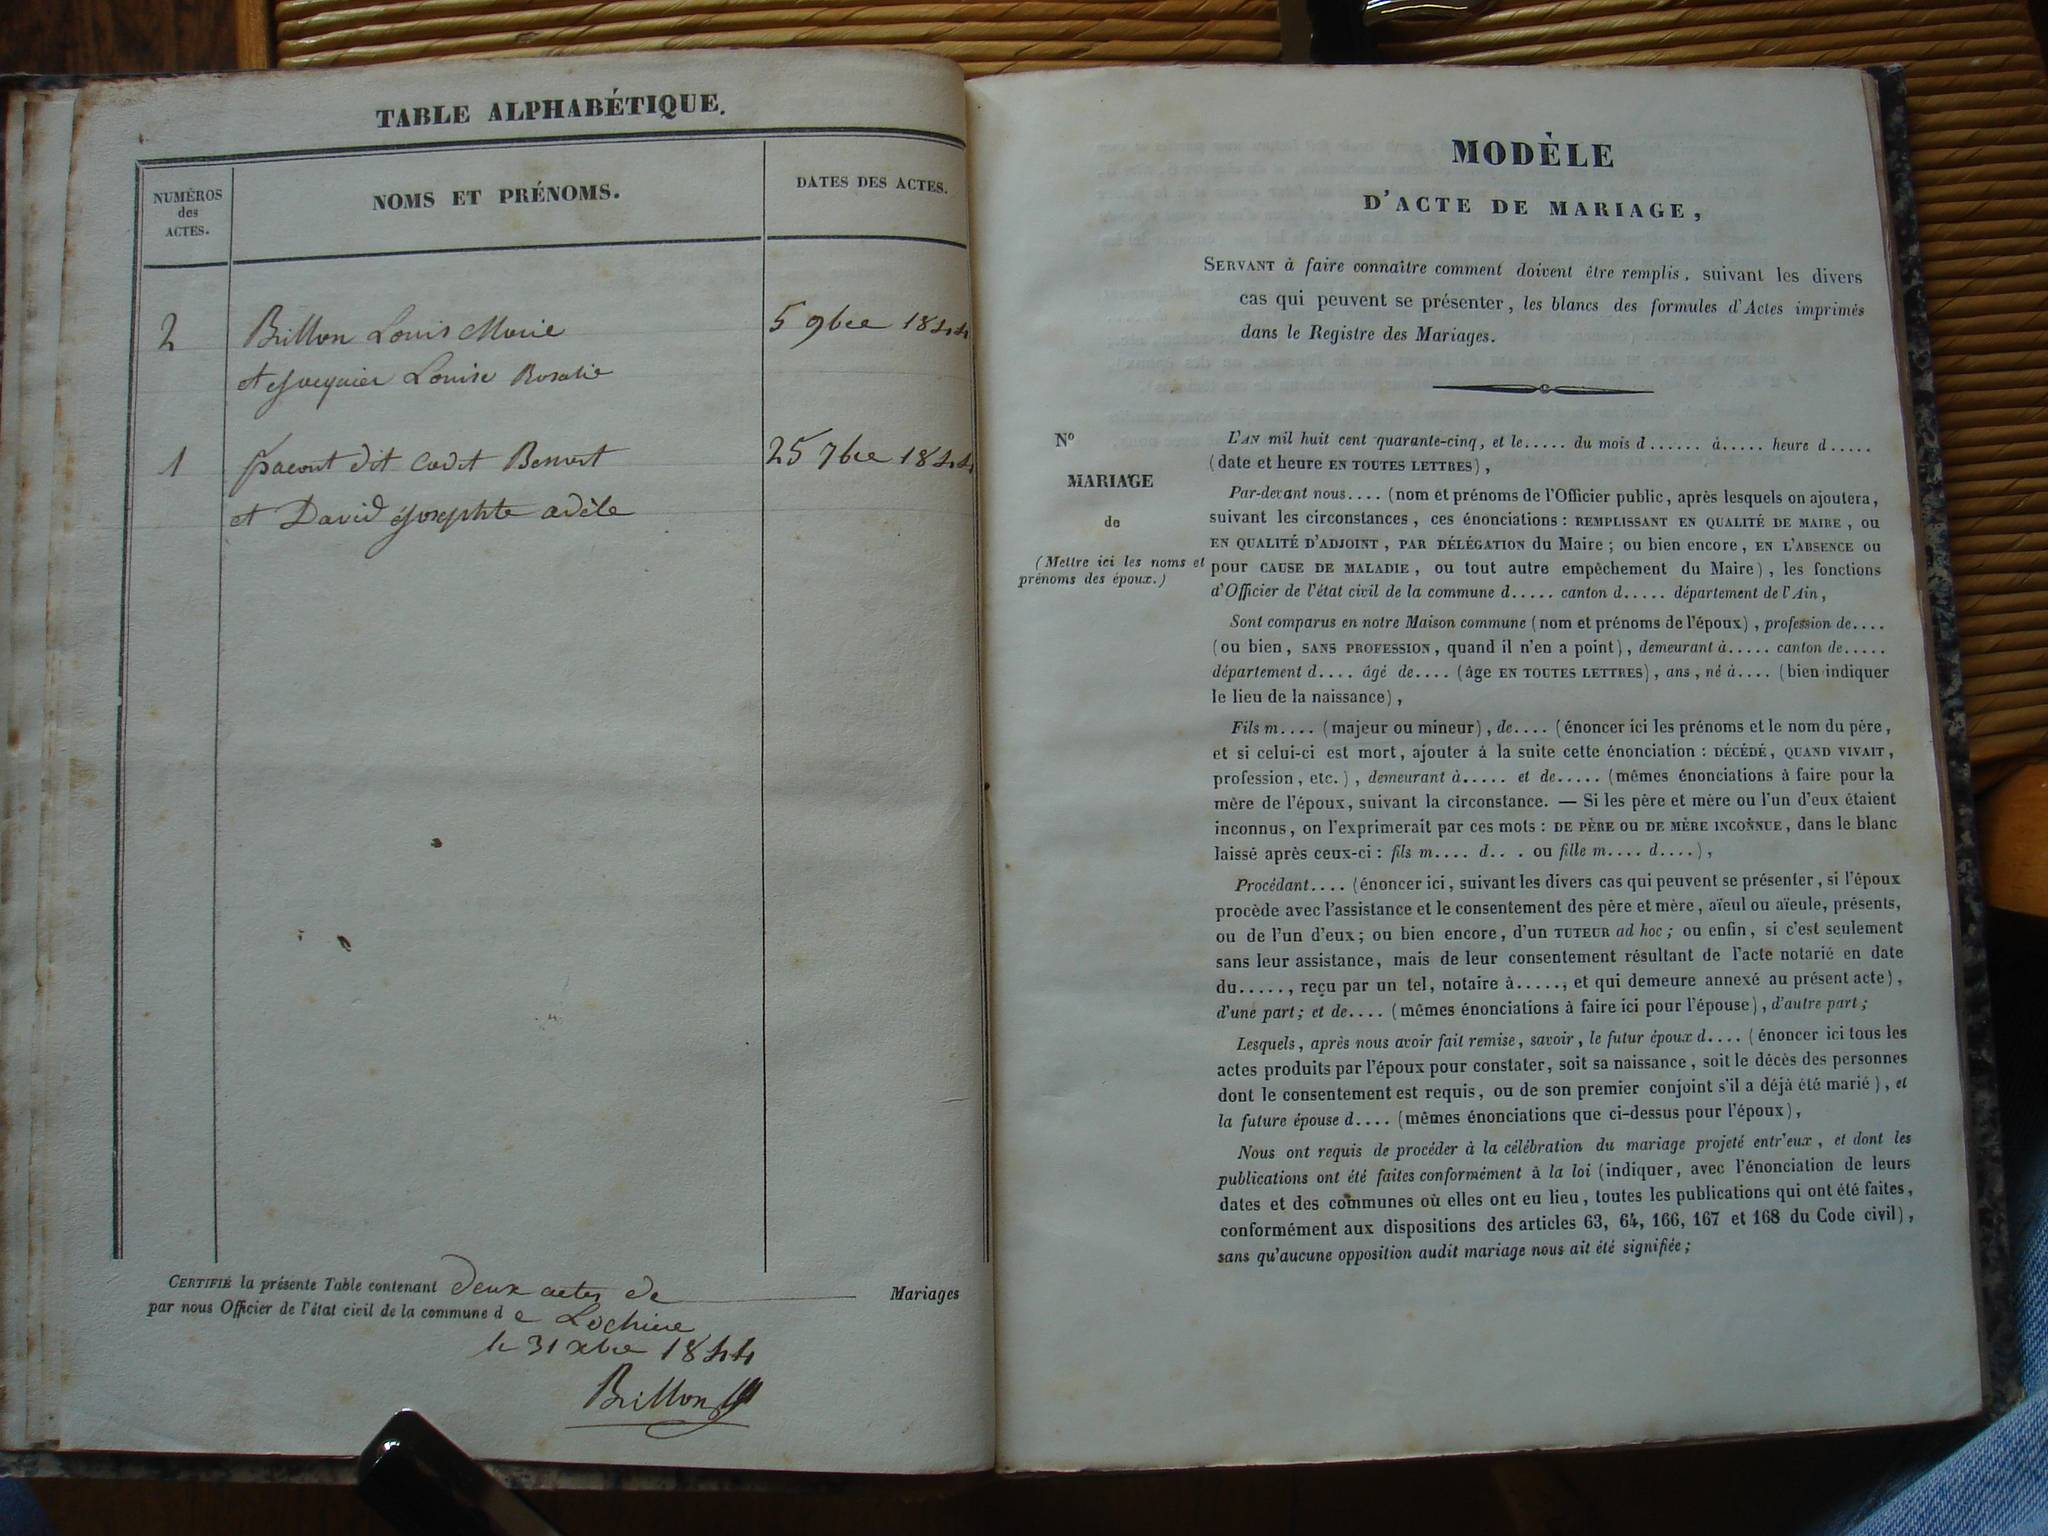 TABLE ALPHABÉTIQUE.
NUMÉROS
des
ACTES.
NOMS ET PRÉNOMS.
DATES DES ACTES.
2 Brillon Louis Marie 5 9bre 1844
et Louise Rosalie
1 dit Cadet Benoit 25 7bre 1844
et David Josephte adèle
CERTIFIÉ la présente Table contenant deux actes de Mariages
par nous Officier de l'état civil de la commune d e Lochieu
le 31 xbre 1844
Brillon
MODÈLE
D'ACTE DE MARIAGE,
SERVANT à faire connaître comment doivent être remplis, suivant les divers
cas qui peuvent se présenter, les blancs des formules d'Actes imprimés
dans le Registre des Mariages.
N°
MARIAGE
de
(Mettre ici les noms et
prénoms des époux.)
L'AN mil huit cent quarante-cinq, et le..... du mois d...... à..... heure d.....
(date et heure EN TOUTES LETTRES),
Par-devant nous.... (nom et prénoms de l'Officier public, après lesquels on ajoutera,
suivant les circonstances, ces énonciations : REMPLISSANT EN QUALITÉ DE MAIRE, ou
EN QUALITÉ D'ADJOINT, PAR DÉLÉGATION du Maire; ou bien encore, EN L'ABSENCE ou
pour CAUSE DE MALADIE, ou tout autre empêchement du Maire), les fonctions
d'Officier de l'état civil de la commune d..... canton d..... département de l'Ain,
Sont comparus en notre Maison commune (nom et prénoms de l'époux), profession de....
(ou bien, SANS PROFESSION, quand il n'en a point), demeurant à..... canton de.....
département d.... âgé de.... (âge EN TOUTES LETTRES), ans, né à.... (bien indiquer
le lieu de la naissance),
Fils m.... (majeur ou mineur), de.... (énoncer ici les prénoms et le nom du père,
et si celui-ci est mort, ajouter à la suite cette énonciation : DÉCÉDÉ, QUAND VIVAIT,
profession, etc.), demeurant à..... et de..... (mêmes énonciations à faire pour la
mère de l'époux, suivant la circonstance. — Si les père et mère ou l'un d'eux étaient
inconnus, on l'exprimerait par ces mots : DE PÈRE OU DE MÈRE INCONNUE, dans le blanc
laissé après ceux-ci : fils m.... d.. . ou fille m.... d....),
Procédant.... (énoncer ici, suivant les divers cas qui peuvent se présenter, si l'époux
procède avec l'assistance et le consentement des père et mère, aïeul ou aïeule, présents,
ou de l'un d'eux; ou bien encore, d'un TUTEUR ad hoc; ou enfin, si c'est seulement
sans leur assistance, mais de leur consentement résultant de l'acte notarié en date
du....., reçu par un tel, notaire à....., et qui demeure annexé au présent acte),
d'une part; et de.... (mêmes énonciations à faire ici pour l'épouse), d'autre part;
Lesquels, après nous avoir fait remise, savoir, le futur époux d.... (énoncer ici tous les
actes produits par l'époux pour constater, soit sa naissance, soit le décès des personnes
dont le consentement est requis, ou de son premier conjoint s'il a déjà été marié), et
la future épouse d.... (mêmes énonciations que ci-dessus pour l'époux),
Nous ont requis de procéder à la célébration du mariage projeté entr'eux, et dont les
publications ont été faites conformément à la loi (indiquer, avec l'énonciation de leurs
dates et des communes où elles ont eu lieu, toutes les publications qui ont été faites,
conformément aux dispositions des articles 63, 64, 166, 167 et 168 du Code civil),
sans qu'aucune opposition audit mariage nous ait été signifiée;